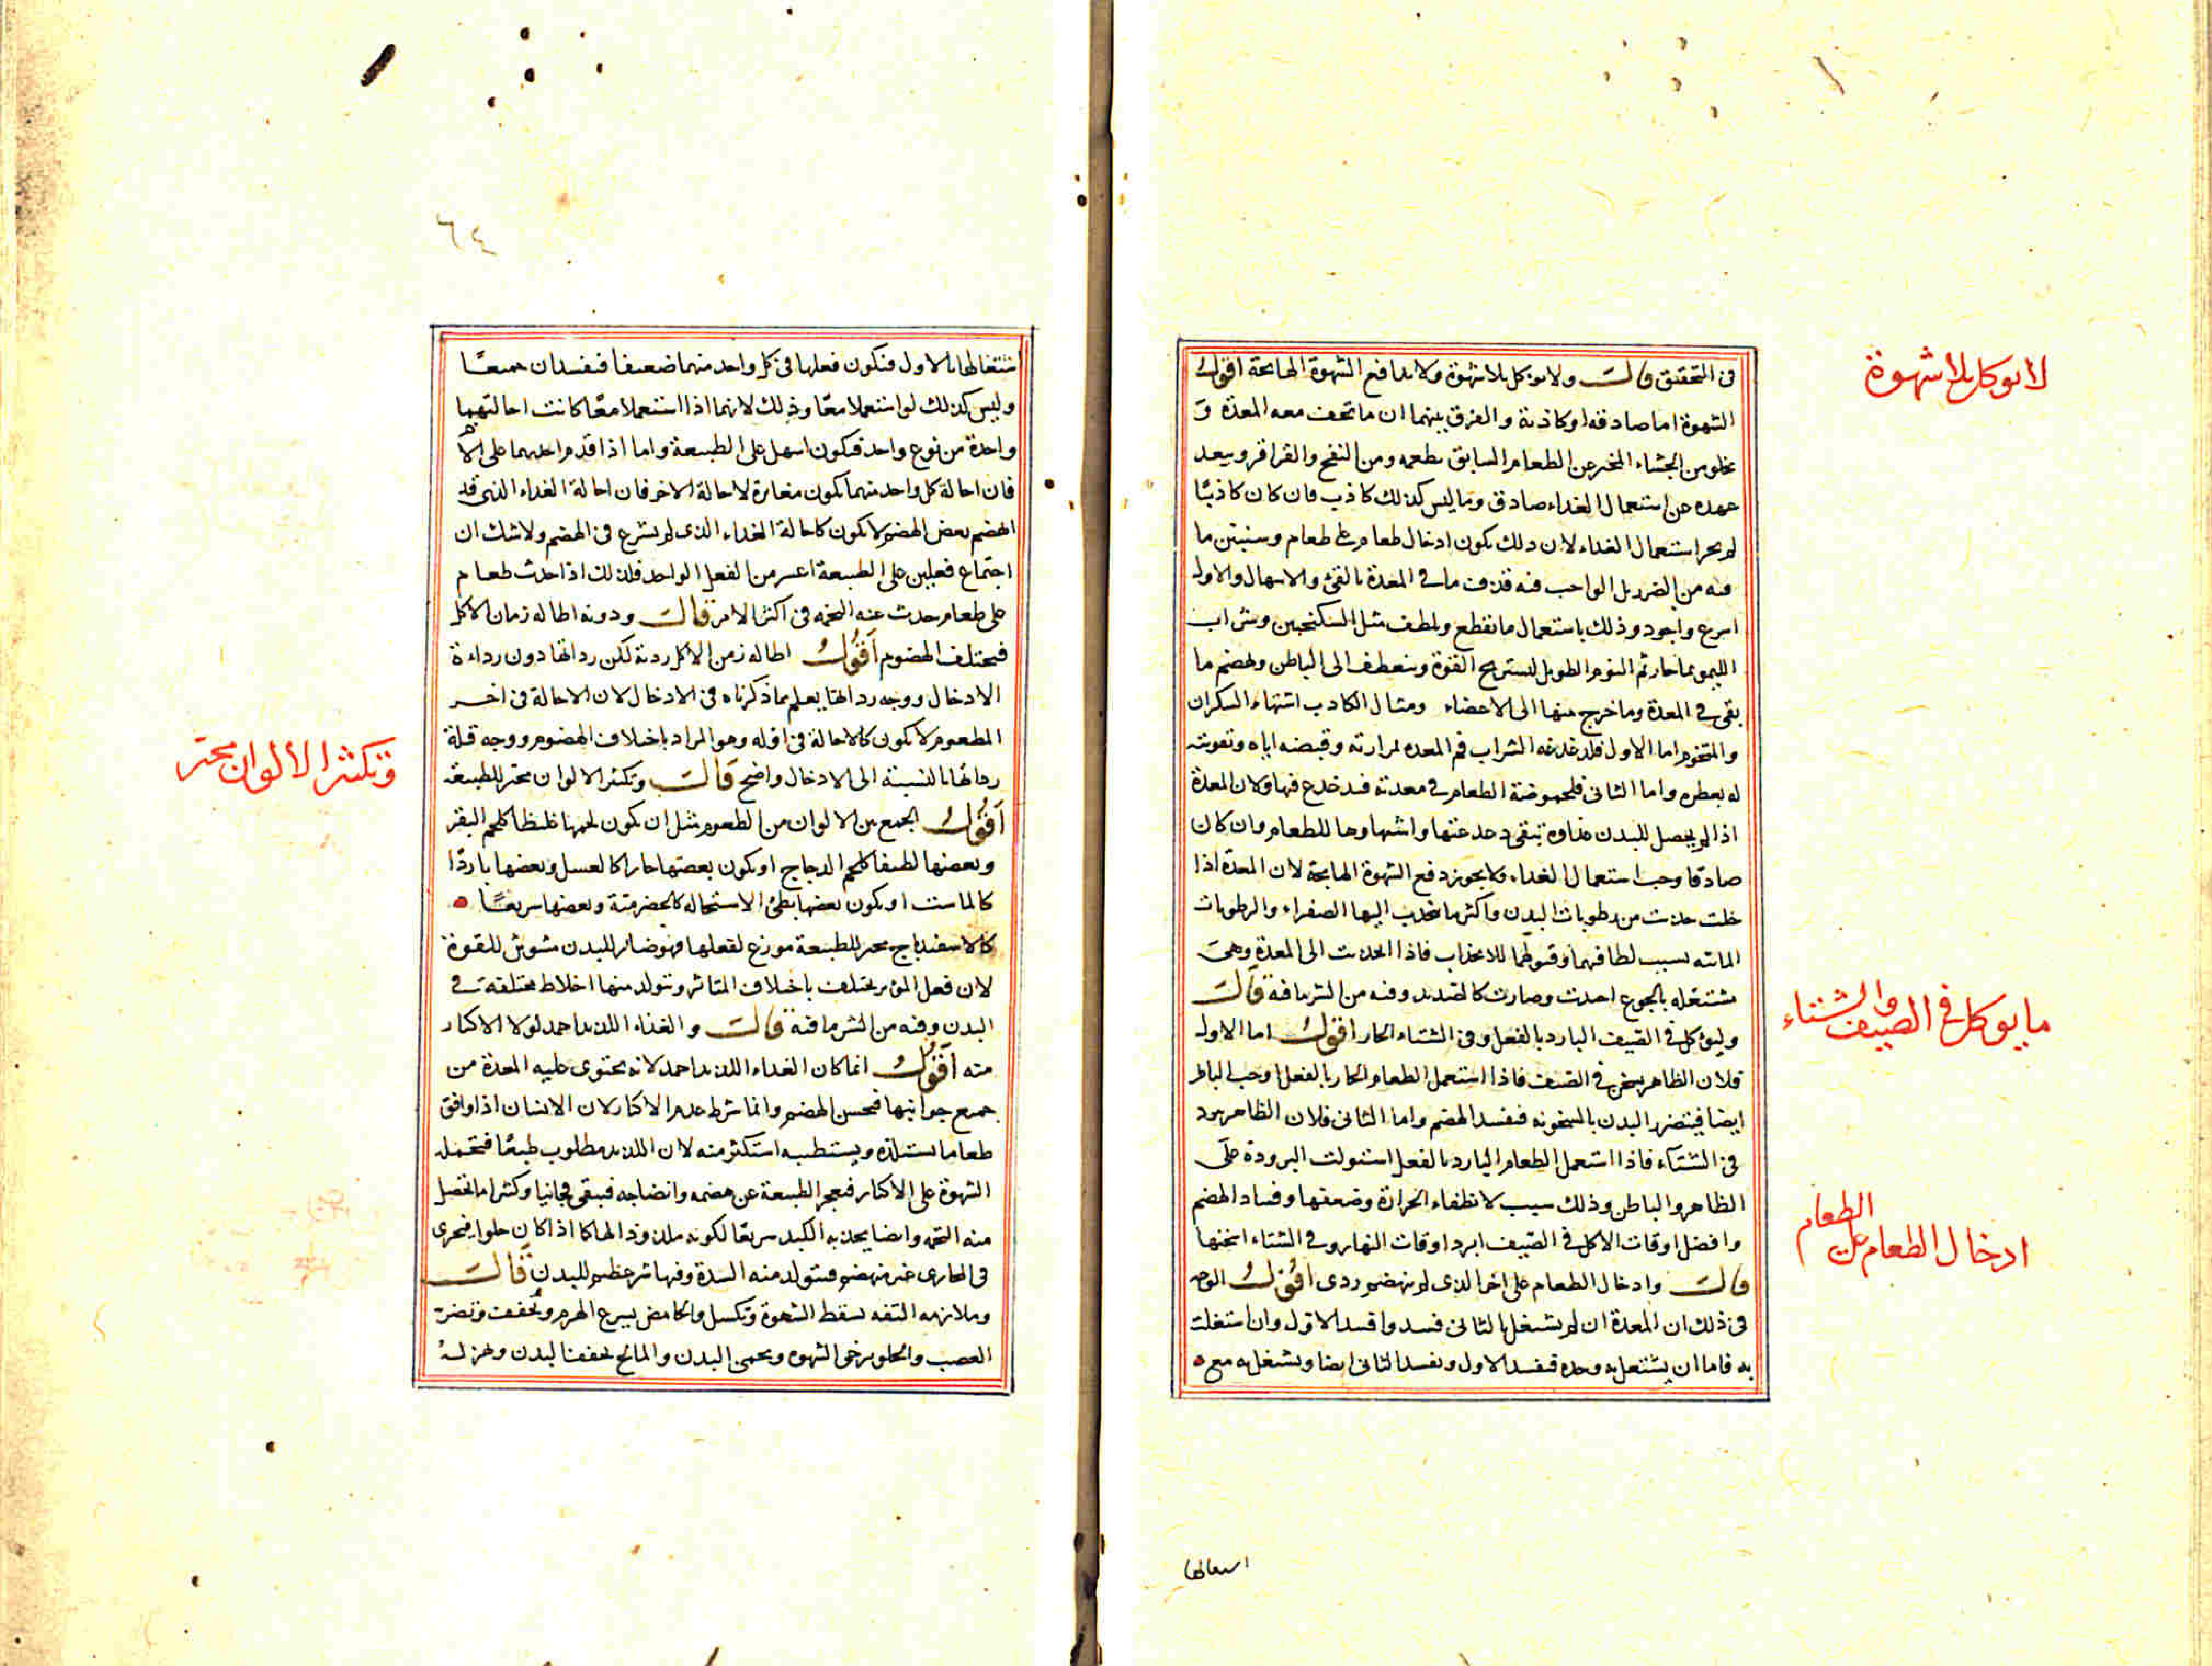 لا يوكل بلا شهوة
فى التحقيق قال ولا يوكل بلا شهوة ولا يدافع الشهوة الهايجة اقول
الشهوة اما صادقة او كاذبة والفرق بينهما ان ما تخف معه المعدة و
يخلو من الجشاء المخبر عن الطعام السابق بطعمه ومن النفخ والقراقر ويبعد
عهده عن استعمال الغداء صادق وما ليس كذلك كاذب فان كان كاذبًا
لم يجز استعمال الغداء لان ذلك يكون ادخال طعام على طعام وسنبين ما
فيه من الضرر بل الواجب فيه قذف ما فى المعدة بالقئ والاسهال والاول
اسرع واجود وذلك باستعمال ما يقطع ويلطف مثل السكنجبين وشراب
الليمو بماء حار ثم النوم الطويل لتستريح القوة وينعطف الى الباطن ويهضم ما
بقى فى المعدة وما خرج منها الى الاعضاء ومثال الكاذب اشتهاء السكران
والمتخوم اما الاول فلدغدغه الشراب فم المعده لمرارته وقبضه اياه وتقويته
له بعطره واما الثانى فلحموضة الطعام فى معدته فيدغدغ فمها ولان المعدة
اذا لم يحصل للبدن غذاوه تبقى دغدغتها واشتهاوها للطعام وان كان
صادقا وجب استعمال الغداء ولا يجوز دفع الشهوة الهايجة لان المعدة اذا
خلت جذبت من رطوبات البدن واكثر ما ينجذب اليها الصفراء والرطوبات
المائيه بسبب لطافتهما وقبولهما للانجذاب فاذا انجذبت الى المعدة وهى
مشتغله بالجوع احدت وصارت كالصديد وفيه من الشر ما فيه قال
وليوكل فى الصيف البارد بالفعل وفى الشتاء الحار اقول اما الاول
فلان الظاهر يسخن فى الصيف فاذا استعمل الطعام الحار بالفعل اوجب الباطن
ايضا فيتضرر البدن بالسخونه فيفسد الهضم واما الثانى فلان الظاهر يبرد
فى الشتاء فاذا استعمل الطعام البارد بالفعل استولت البرودة على
الظاهر والباطن وذلك سبب لانطفاء الحرارة وضعفها وفساد الهضم
وافضل اوقات الاكل فى الصيف ابرد اوقات النهار وفى الشتاء اسخنها
قال وادخال الطعام على اخر الذى لم ينهضم ردى اقول الوجه
فى ذلك ان المعدة ان لم يشتغل بالثانى فسد وافسد الاول وان اشتغلت
به فاما ان يشتغل به وحده فيفسد الاول ويفسد الثانى ايضا ويشتغل به مع
ما يوكل فى الصيف والشتاء
ادخال الطعام على الطعام
اسعالها
٦٤
شتغالها بالاول فيكون فعلها فى كل واحد منهما ضعيفا فيفسدان جميعًا
وليس كذلك لو استعملا معًا وذلك لانهما اذا استعملا معًا كانت احالتهما
واحدة من نوع واحد فيكون اسهل على الطبيعة واما اذا قدم احدهما على الا
فان احالة كل واحد منهما يكون مغايرة لاحالة الاخر فان احالة الغداء الذى قد
انهضم بعض الهضم لا يكون كاحالة الغداء الذى لم يشرع فى الهضم ولا شك ان
اجتماع فعلين على الطبيعة اعسر من الفعل الواحد فلذلك اذا احدث طعام
على طعام حدث عنه التخمه فى اكثر الامر قال ودونه اطاله زمان الاكل
فيختلف الهضوم اقول اطاله زمن الاكل ردية لكن رداتها دون رداءة
الادخال ووجه رداتها يعلم بما ذكرناه فى الادخال لان الاحالة فى اخر
المطعوم لا يكون كالاحالة فى اوله وهو المراد باختلاف الهضوم ووجه قلة
رداتها بالنسبة الى الادخال واضح قال وتكثر الالوان محير للطبيعة
اقول الجمع بين الالوان من الطعوم مثل ان يكون لحمها غليظا كلحم البقر
وبعضها لطيفا كلحم الدجاج او يكون بعضها حارا كالعسل وبعضها باردًا
كالماست او يكون بعضها بطئ الاستحاله كالحضرمية وبعضها سريعًا
كالاسفيدباج محير للطبيعة موزع لفعلها فهو ضار للبدن مشوش للقوة
لان فعل المؤثر يختلف باختلاف المتاثر ويتولد منها اخلاط مختلفة فى
البدن وفيه من الشر ما فيه قال والغذاء اللذيذ احمد لولا الاكثار
منه اقول انما كان الغداء اللذيذ احمد لانه يحتوى عليه المعدة من
جميع جوانبها فيحسن الهضم وانما شرط عدم الاكثار لان الانسان اذا وافق
طعاما يستلذه ويستطيبه استكثر منه لان اللذيذ مطلوب طبعًا فتحمله
الشهوة على الاكثار فيعجز الطبيعة عن هضمه وانضاجه فيبقى فجا نيا وكثيرا ما يحصل
منه التخمه وايضا يجذبه الكبد سريعًا لكونه ملذوذا لها كما اذا كان حلوا فيجرى
فى المجارى غير منهضم فيتولد منه السدة وفيها شر عظيم للبدن قال
وملازمه التفه يسقط الشهوة ويكسل والحامض يسرع الهرم ويجفف ويضر
العصب والحلو يرخى الشهوه ويحمى البدن والمالح يجفف البدن ويهزله
وتكثر الالوان محير